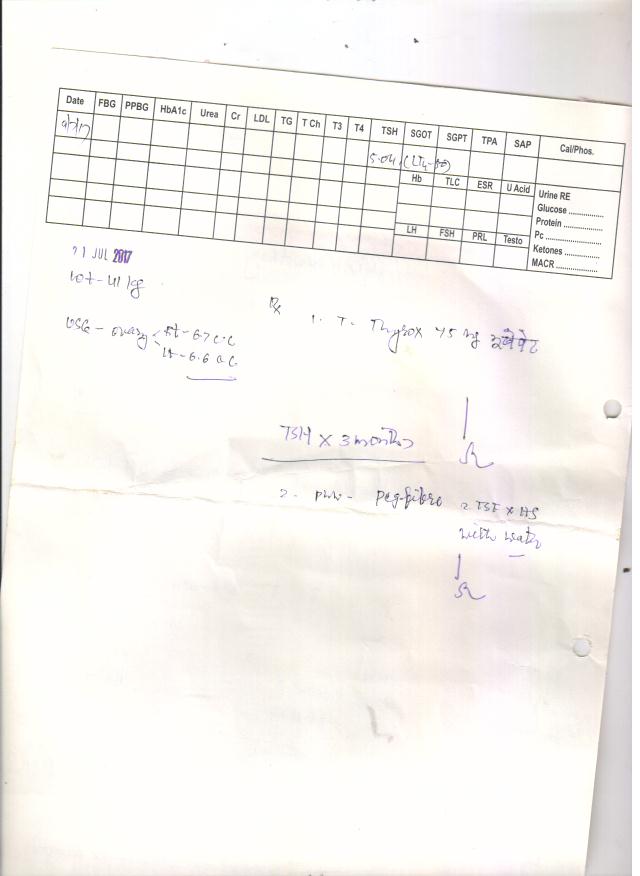 Date FBG PPBG HbA1c Urea Cr LDL TG T Ch T3 T4 TSH SGOT SGPT TPA SAP Cal/Phos.
5.04 (LT4-50)
Hb TLC ESR U Acid
Urine RE
Glucose ..............
Protein ..............
LH FSH PRL Testo
Pc ..............
Ketones ..............
MACR ..............
21 JUL 2017
wt-41 kg
Rx 1. T. Thyrox 75 mg
USG - ovary Rt-6.7 c.c
Lt-6.6 c.c.
TSH x 3 months
2. Peg-fibre 2 TSF x HS
with water